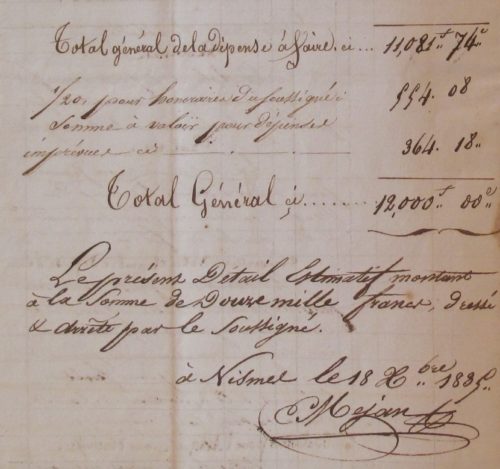 Total général de la dépense à faire ci ... 11,081f 74c
1/20e pour honoraires du soussigné ci 554. 08
Somme à valoir pour dépenses
imprévues ci 364. 18
Total Général ci ........ 12,000f 00c
Le présent Détail Estimatif montant
à la somme de Douze mille francs, dressé
& arrêté par le Soussigné.
à Nismes le 18 Xbre 1835.
Mejan